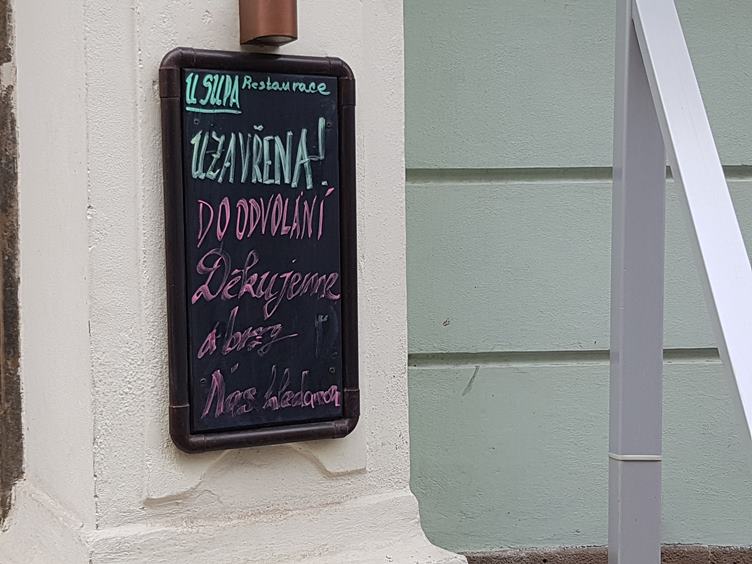 U SUPA Restaurace
UZAVŘENA!
DO ODVOLÁNÍ
Děkujeme
a brzy
Nás